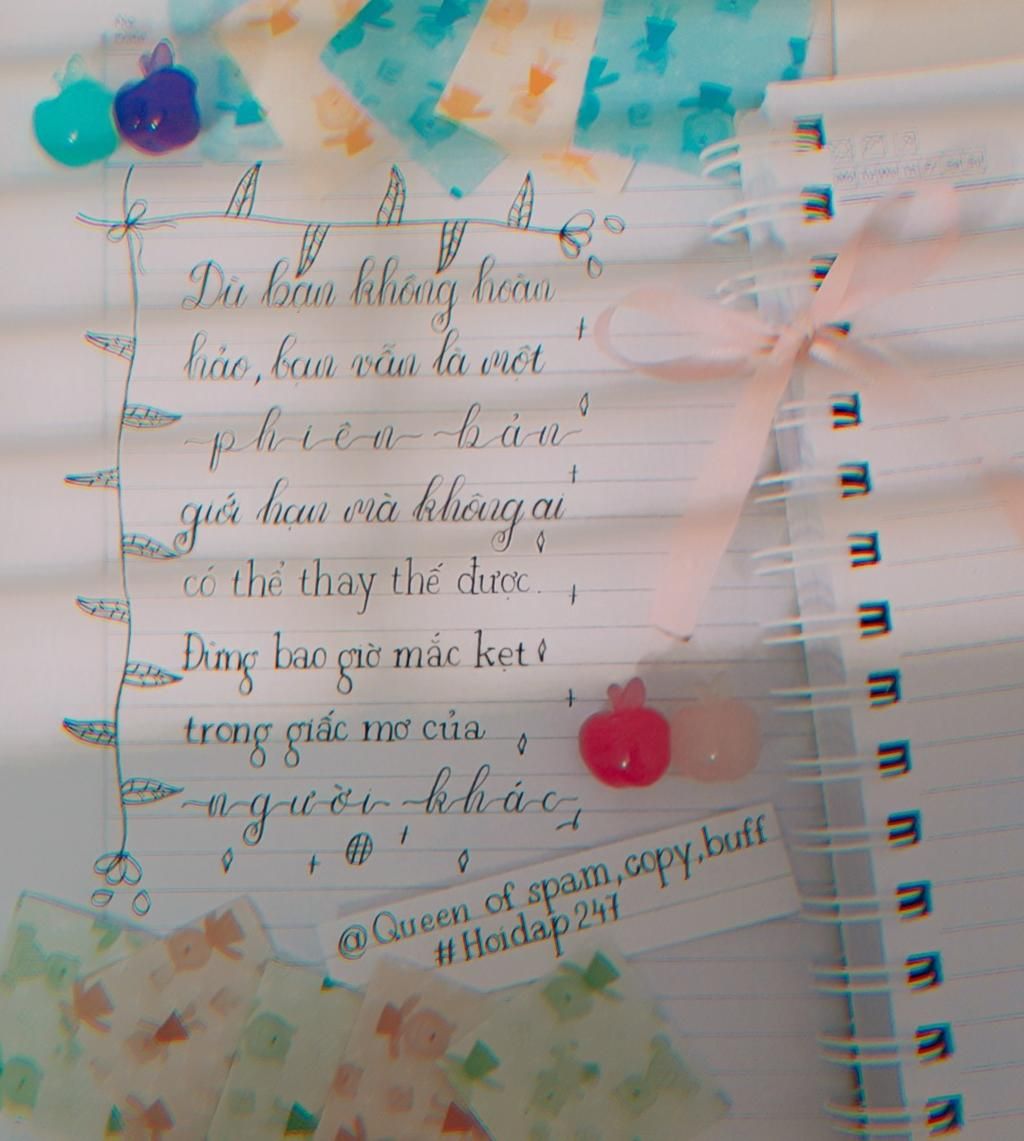 Dù bạn không hoàn
hảo, bạn vẫn là một
phiên bản
giới hạn mà không ai
có thể thay thế được.
Đừng bao giờ mắc kẹt
trong giấc mơ của
người khác
@Queen of spam, copy, buff
#Hoidap247